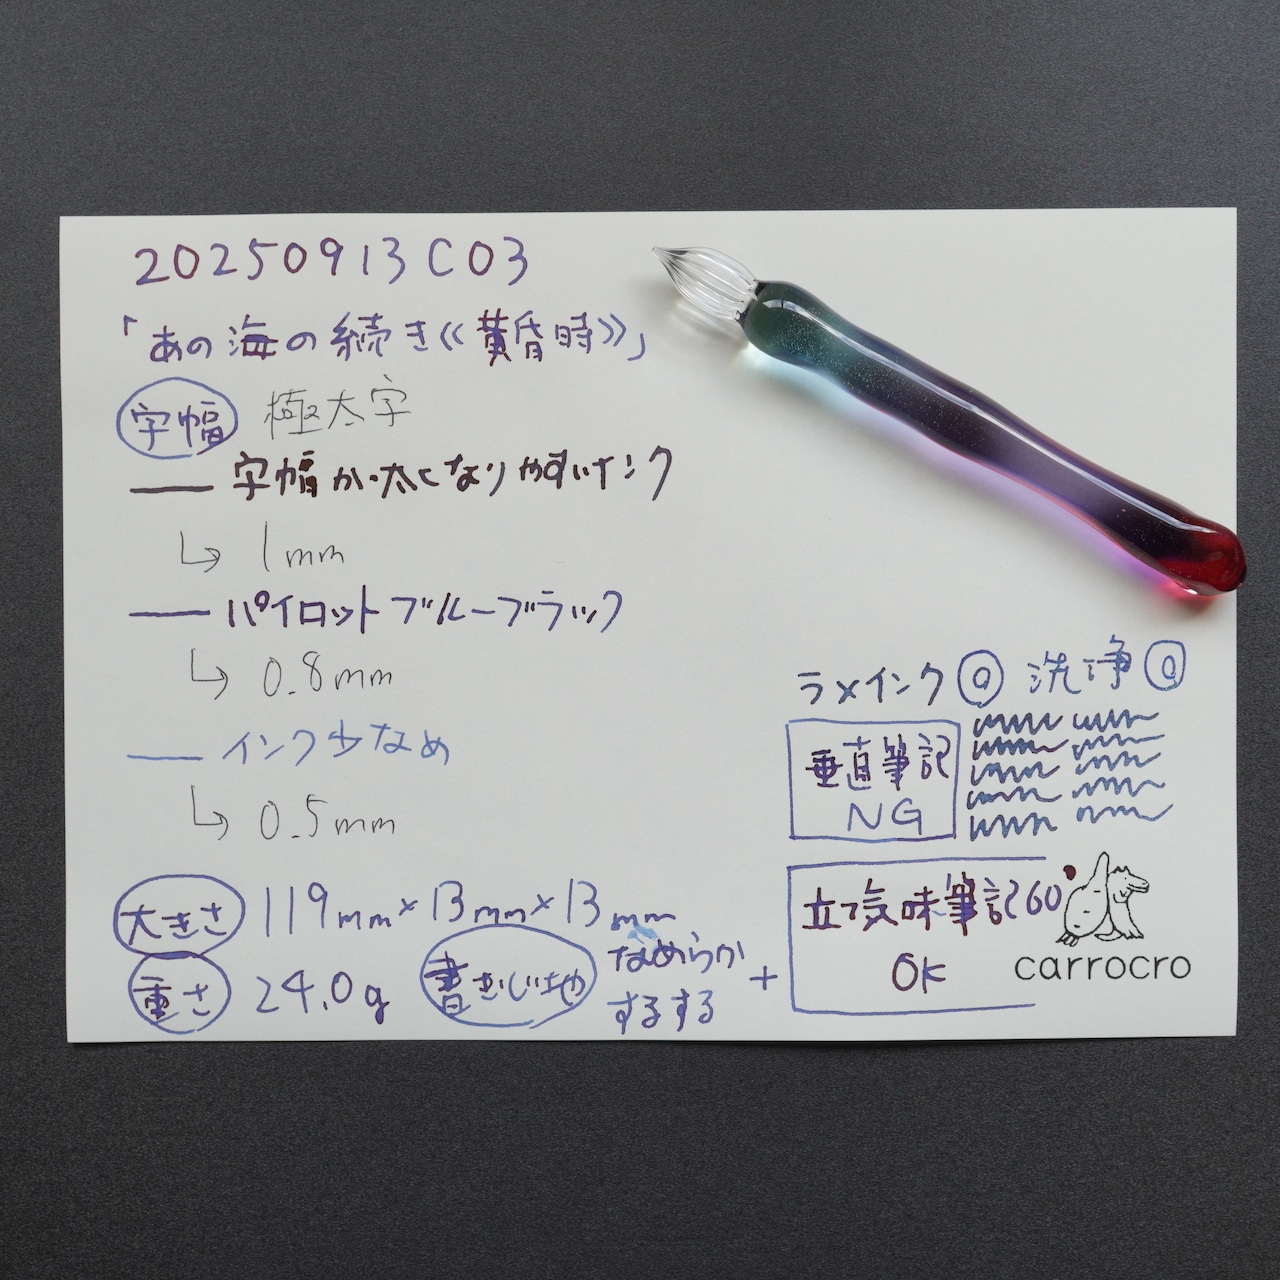 20250913 C03
「あの海の続き《黄昏時》」
字幅 極太字
字幅が太くなりやすいインク
↳ 1mm
パイロットブルーブラック
↳ 0.8mm
インク少なめ
↳ 0.5mm
大きさ 119mm×13mm×13mm
重さ 24.0g
書き心地 なめらか
するする +
ラメインク◎ 洗浄◎
垂直筆記
NG
立て気味筆記60°
OK
carrocro